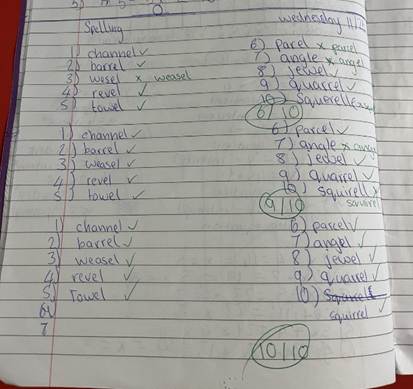 Spelling
Wednesday 11/
1) channel ✓
2) barrel ✓
3) wesel x weasel
4) revel ✓
5) towel ✓
6) parcel x parcel
7) angle x angel
8) jewel ✓
9) quarrel ✓
10) Squerell
6/10
1) channel ✓
2) barrel ✓
3) weasel ✓
4) revel ✓
5) towel ✓
6) parcel ✓
7) angle x angel
8) jewel ✓
9) quarrel ✓
10) squirell x
squirrel
9/10
1) channel ✓
2) barrel ✓
3) weasel ✓
4) revel ✓
5) Towel ✓
6)
7
6) parcel ✓
7) angel ✓
8) jewel ✓
9) quarrel ✓
10)
squirrel ✓
10/10